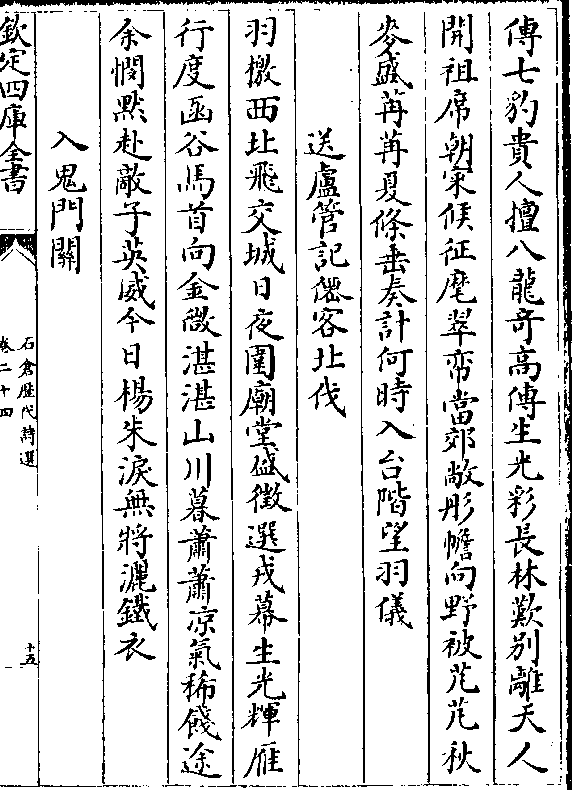 傳七豹貴人擅八龍竒髙傳生光彩長林歎別離天人
開祖席朝宷候征麾翠帟當郊敞彤幨向野被芃芃秋
麥盛苒苒夏條垂奏計何時入台階望羽儀
送盧管記僊客北伐
羽檄西北飛交城日夜圍廟堂盛徴選戎幕生光輝雁
行度函谷馬首向金微湛湛山川暮蕭蕭凉氣稀餞途
余憫黙赴敵子英威今日楊朱淚無將灑鐵衣
入鬼門關
欽定四庫全書
石倉歴代詩選
卷二十四
十五